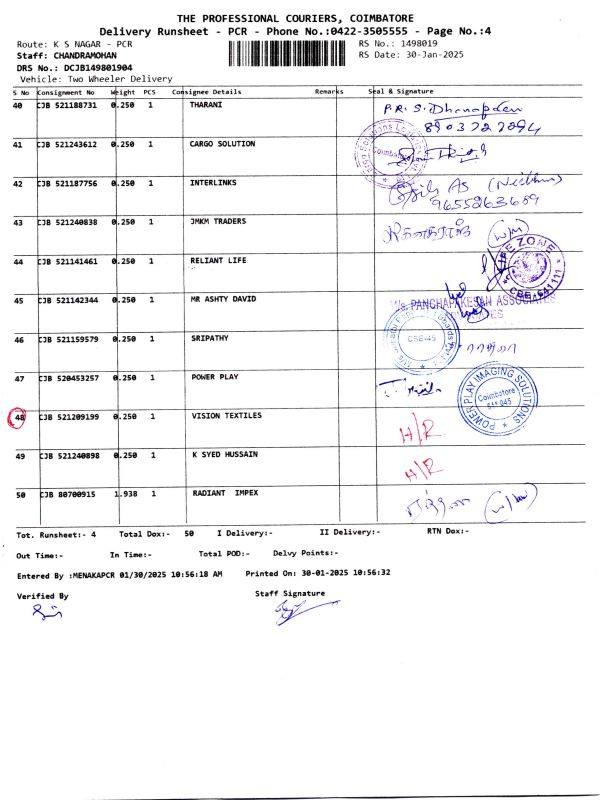 THE PROFESSIONAL COURIERS, COIMBATORE
Delivery Runsheet - PCR - Phone No.:0422-3505555 - Page No.:4
Route: K S NAGAR - PCR
RS No.: 1498019
Staff: CHANDRAMOHAN
RS Date: 30-Jan-2025
DRS No.: DCJB149801904
Vehicle: Two Wheeler Delivery
S No Consignment No Weight PCS Consignee Details Remarks Seal & Signature
40 CJB 521188731 0.250 1 THARANI
P.R.S. Dhanapden
41 CJB 521243612 0.250 1 CARGO SOLUTION
Coimbatore
42 CJB 521187756 0.250 1 INTERLINKS
9655263689
43 CJB 521240838 0.250 1 JMKM TRADERS
44 CJB 521141461 0.250 1 RELIANT LIFE
LIFE ZONE
CBE-641 111
45 CJB 521142344 0.250 1 MR ASHTY DAVID
PANCHAPAKESAN ASSOCIATES
46 CJB 521159579 0.250 1 SRIPATHY
CBE-45
47 CJB 520453257 0.250 1 POWER PLAY
POWER PLAY IMAGING SOLUTIONS
Coimbatore
641 045
48 CJB 521209199 0.250 1 VISION TEXTILES
H/R
49 CJB 521240898 0.250 1 K SYED HUSSAIN
H/R
50 CJB 80700915 1.938 1 RADIANT IMPEX
Tot. Runsheet:- 4 Total Dox:- 50 I Delivery:- II Delivery:- RTN Dox:-
Out Time:- In Time:- Total POD:- Delvy Points:-
Entered By :MENAKAPCR 01/30/2025 10:56:18 AM Printed On: 30-01-2025 10:56:32
Verified By Staff Signature